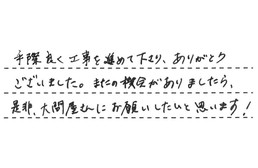 手際良く工事を進めて下さり、ありがとう
ございました。またの機会がありましたら、
是非、大問屋さんにお願いしたいと思います!